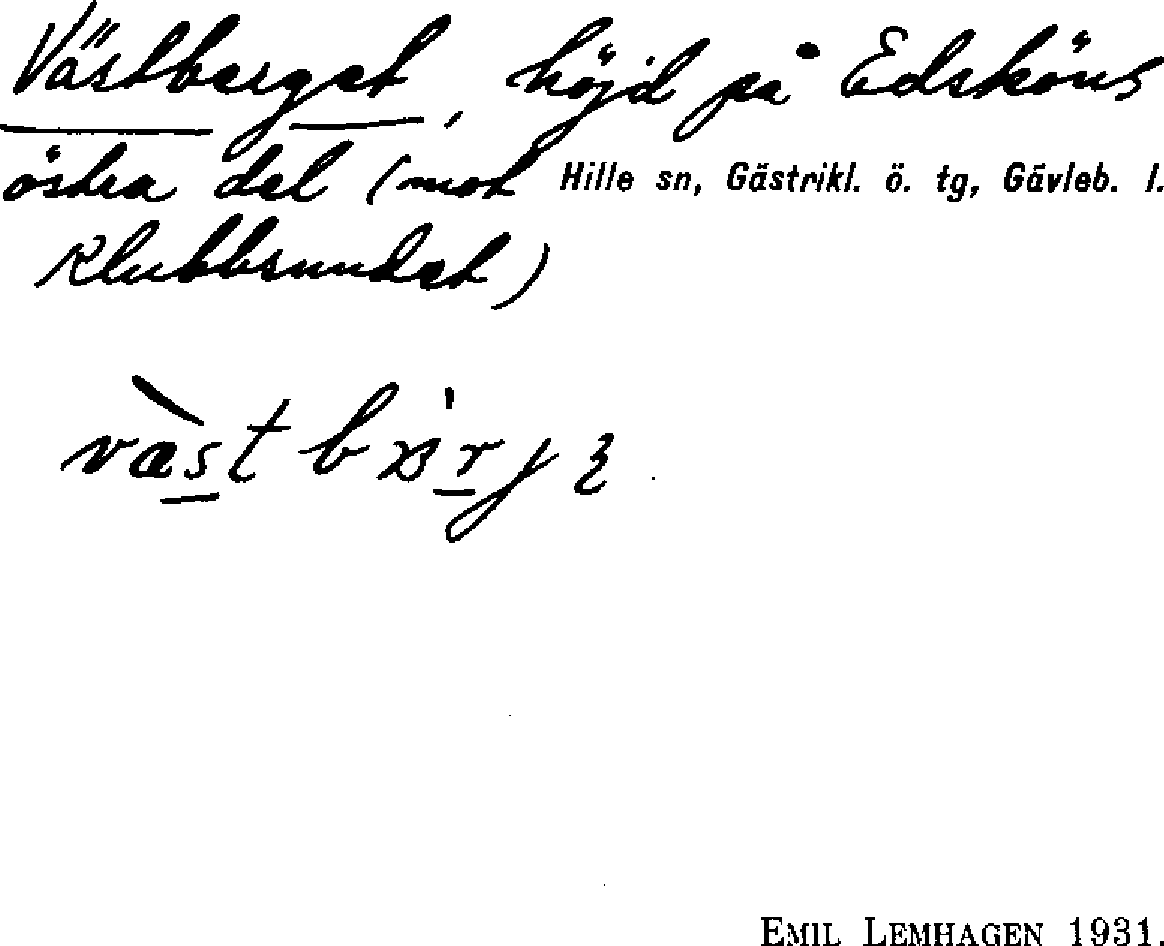 Västberget, höjd på Edsköns
östra del (mot Hille sn, Gästrikl. ö. tg, Gävleb. l.
Klubbsundet)
EMIL LEMHAGEN 1931.